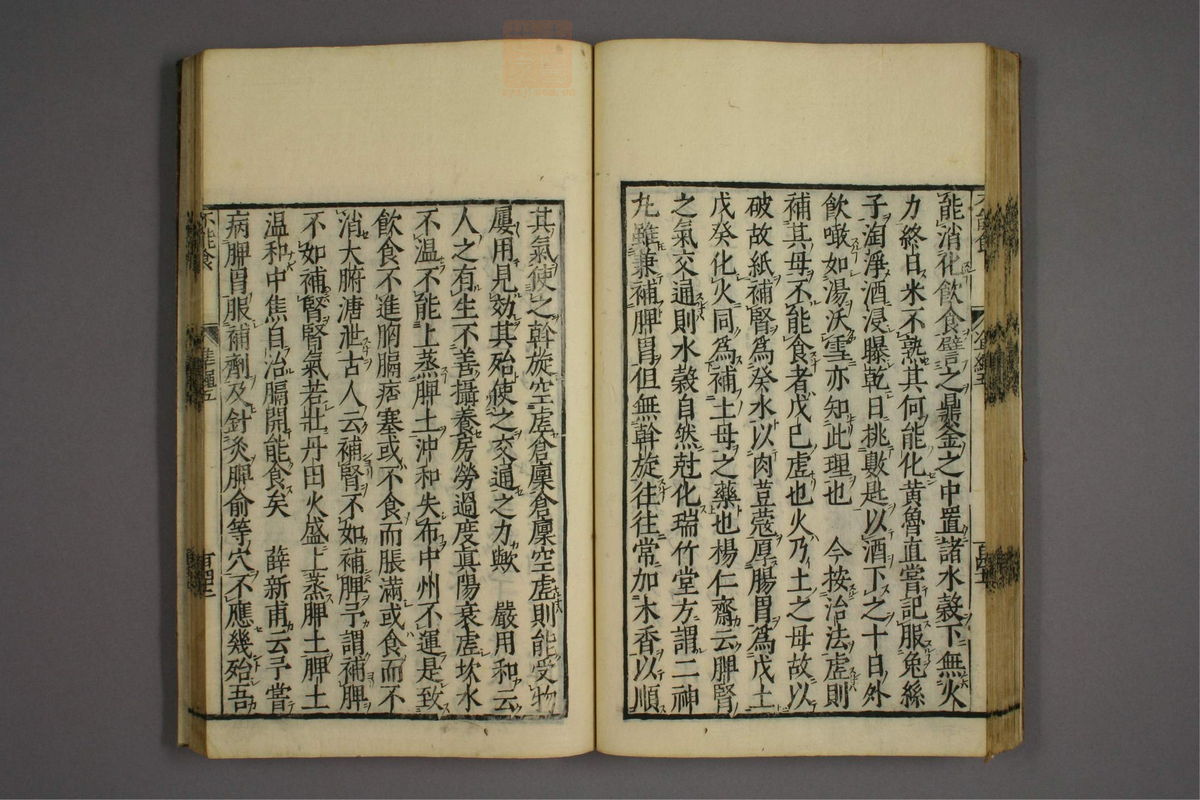 能消化飲食譬之鼎釜之中置諸水穀下無火
力終日米不熟其何能化黄魯直嘗記服兔絲
子淘淨酒浸曝乾日挑數匙以酒下之十日外
飲噉如湯沃雪亦知此理也　今按治法虛則
補其母不能食者戊巳虛也火乃土之母故以
破故紙補腎爲癸水以肉荳蔻厚腸胃爲戊土
戊癸化火同爲補土母之藥也楊仁齋云脾腎
之氣交通則水穀自然尅化瑞竹堂方謂二神
丸雖兼補脾胃但無斡旋往往常加木香以順
其氣使之斡旋空虛倉廩倉廩空虛則能受物
屢用見効其殆使之交通之力歟　嚴用和云
人之有生不善攝養房勞過度真陽衰虛坎水
不温不能上蒸脾土沖和失布中州不運是致
飲食不進胸膈痞塞或不食而脹滿或食而不
消大腑溏泄古人云補腎不如補脾予謂補脾
不如補腎腎氣若壯丹田火盛上蒸脾土脾土
温和中焦自治膈開能食矣　薛新甫云予嘗
病脾胃服補劑及針灸脾俞等穴不應幾殆吾
不能食
準繩五
百四三